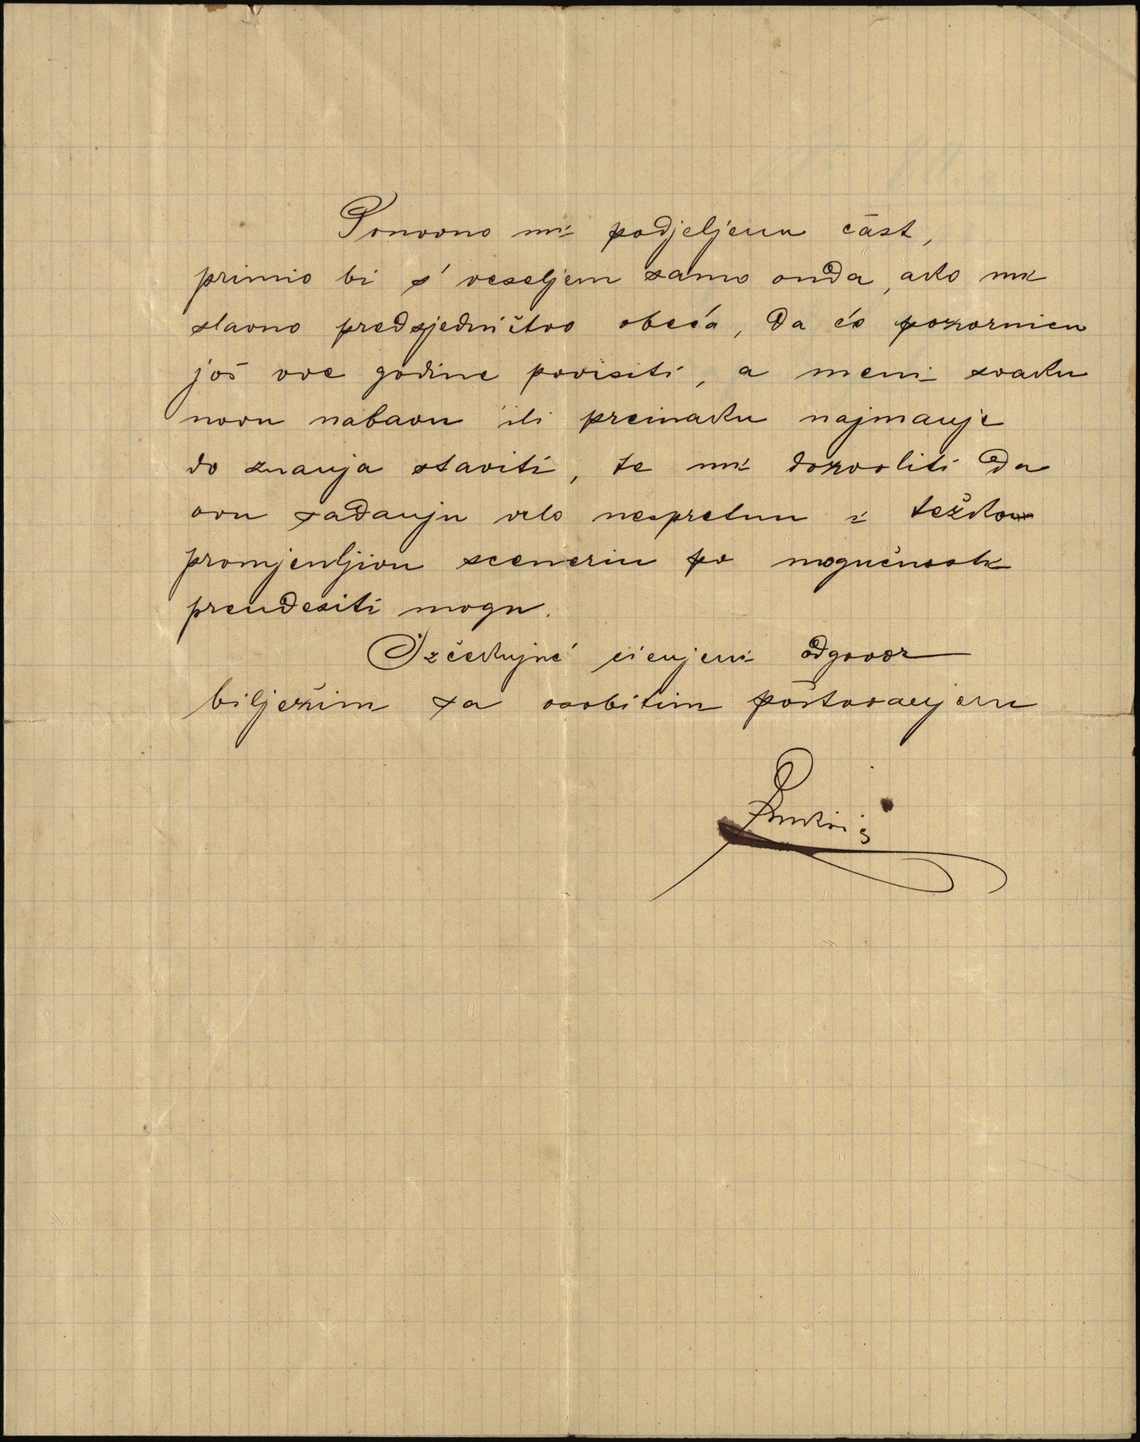 Ponovno mi podjeljenu čast,
primio bi s' veseljem samo onda, ako mi
slavno predsjedničtvo obeća, da će pozornicu
još ove godine povisiti, a meni svaku
novu nabavu ili preinaku najmanje
do znanja staviti, te mi dozvoliti da
ovu sadanju vrlo nespretnu i težko
promjenljivu sceneriu po mogućnosti
preudesiti mogu.
Izčekujuć cienjeni odgovor
bilježim sa osobitim poštovanjem